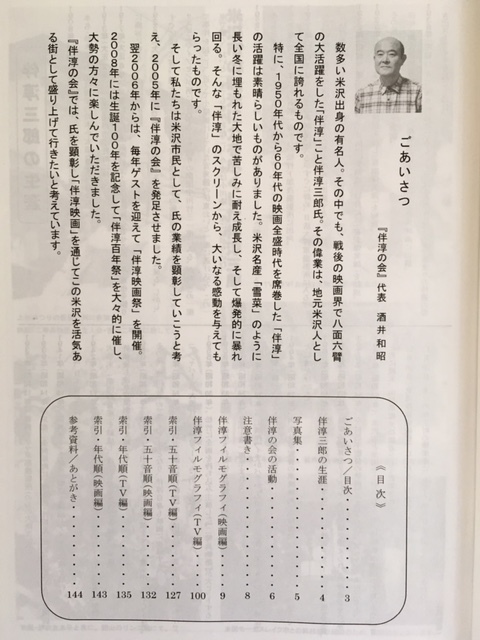 ごあいさつ
『伴淳の会』代表　酒井和昭
数多い米沢出身の有名人。その中でも、戦後の映画界で八面六臂
の大活躍をした「伴淳」こと伴淳三郎氏。その偉業は、地元米沢人とし
て全国に誇れるものです。
特に、1950年代から60年代の映画全盛時代を席巻した「伴淳」
の活躍は素晴らしいものがありました。米沢名産「雪菜」のように
長い冬に埋もれた大地で苦しみに耐え成長し、そして爆発的に暴れ
回る。そんな「伴淳」のスクリーンから、大いなる感動を与えても
らったものです。
そして私たちは米沢市民として、氏の業績を顕彰していこうと考
え、2005年に『伴淳の会』を発足させました。
翌2006年からは、毎年ゲストを迎えて「伴淳映画祭」を開催。
2008年には生誕100年を記念して「伴淳百年祭」を大々的に催し、
大勢の方々に楽しんでいただきました。
『伴淳の会』では、氏を顕彰し「伴淳映画」を通じてこの米沢を活気あ
る街として盛り上げて行きたいと考えています。
《目次》
ごあいさつ／目次・・・・・・・・・・3
伴淳三郎の生涯・・・・・・・・・・4
写真集・・・・・・・・・・・・・・5
伴淳の会の活動・・・・・・・・・・6
注意書き・・・・・・・・・・・・・8
伴淳フィルモグラフィ（映画編）・・・9
伴淳フィルモグラフィ（TV編）・・・100
索引・五十音順（TV編）・・・・・・127
索引・五十音順（映画編）・・・・・132
索引・年代順（TV編）・・・・・・・135
索引・年代順（映画編）・・・・・・143
参考資料／あとがき・・・・・・・・144